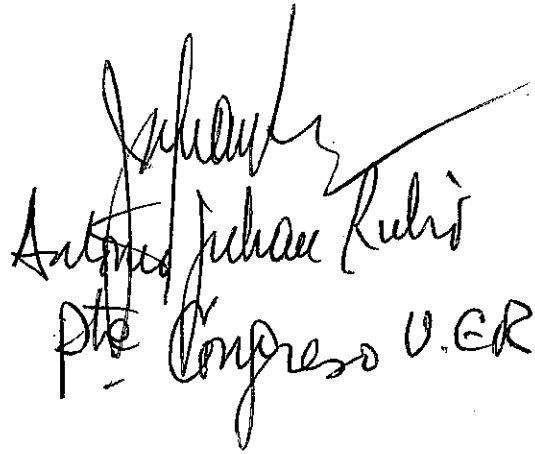 Antonio Julian Rubio
Pte Congreso U.E.R